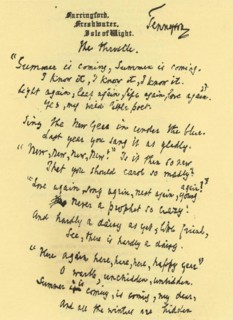 Farringford,
Freshwater,
Isle of Wight.
Tennyson
The Throstle.
"Summer is coming, summer is coming.
I know it, I know it, I know it.
Light again, leaf again, life again, love again"
Yes, my wild little poet.
Sing the New Year in under the blue.
Last year you sang it as gladly.
"New, new, new, new!" Is it then so new
That you should carol so madly?
"Love again, song again, nest again, young again!"
Never a prophet so crazy!
And hardly a daisy as yet, little friend,
See, there is hardly a daisy.
"Here again, here, here, here, happy year"
O warble, unchidden, unbidden.
Summer is coming, is coming, my dear,
And all the winters are hidden